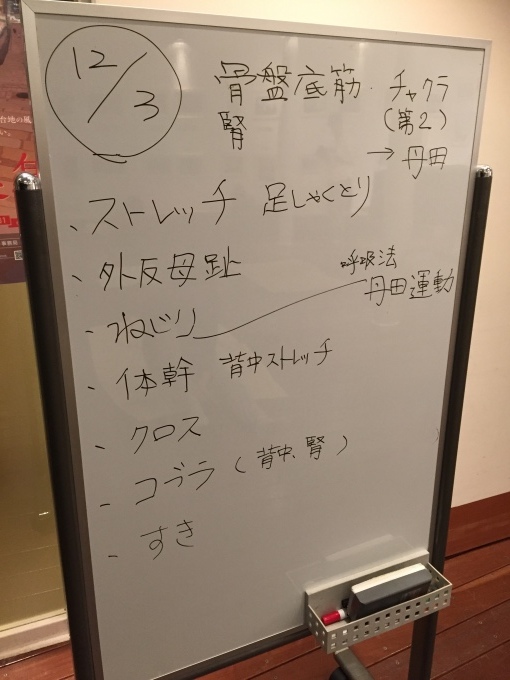 12/3
骨盤底筋・チャクラ
腎 (第2)
→ 丹田
、ストレッチ 足しゃくとり
、外反母趾
、ねじり 呼吸法
丹田運動
、体幹 背中ストレッチ
、クロス
、コブラ (背中、腎)
、すき
台地の風